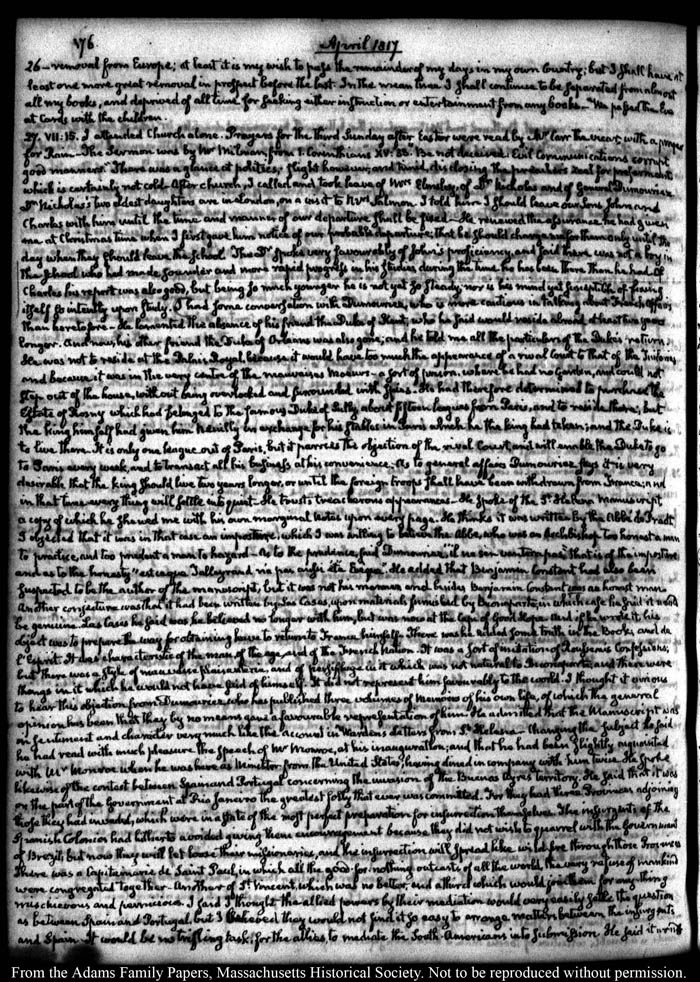 176 April 1817
26 — removal from Europe; at least it is my wish to pass the remainder of my days in my own Country; but I shall have at
least one more great removal in prospect before the last. In the mean time I shall continue to be separated from almost
all my books, and deprived of all time for seeking either instruction or entertainment from any books — We passed the Eve
at Cards with the children.
27. VII:15. I attended Church alone. Prayers for the third Sunday after Easter were read by Mr Carr the vicar, with a prayer
for Rain — The Sermon was by Mr Milman, from 1. Corinthians XV: 33. "Be not deceived: Evil Communications corrupt
good manners." There was a glance at politics, slight however, and timid, disclosing the preacher's zeal for preferment
which is certainly not cold. After church, I called and took leave of Mrs Elmsley, of Dr Nicholas and of General Dumouriez
Dr Nicholas's two eldest daughters are in London, on a visit to Mrs Salmon. I told him I should leave our Sons John and
Charles with him until the time and manner of our departure shall be fixed — He renewed the assurance he had given
me at Christmas time when I first gave him notice of our probable departure; that he should charge me for them only until the
day when they should leave the School. The Dr spoke very favourably of John's proficiency, and said there was not a boy in
the School who had made sounder and more rapid progress in his Studies during the time he has been there than he had. Of
Charles his report was also good, but being so much younger he is not yet so steady, nor is his mind yet susceptible of fixing
itself so intently upon Study. I had some conversation with Dumouriez, who is more cautious in talking about French affairs
than heretofore — He lamented the absence of his friend the Duke of Kent, who he said would reside abroad at least two years
longer. And now, his other friend the Duke of Orleans was also gone; and he told me all the particulars of the Duke's return.
He was not to reside at the Palais Royal, because it would have too much the appearance of a rival Court to that of the Tuileries
and because it was in the very centre of the mauvaises Moeurs — a sort of prison, where he had no Garden, and could not
step out of the house, without being overlooked and surrounded with Spies. He had therefore determined to purchase the
Estate of Rosny which had belonged to the famous Duke of Sully about fifteen leagues from Paris, and to reside there; but
the king himself had given him Neuilly in exchange for his Stables in Paris which he the king had taken; and the Duke is
to live there. It is only one league out of Paris, but it parries the objection of the rival Court, and will enable the Duke to go
to Paris every week, and to transact all his business at his convenience. As to general affairs Dumouriez says it is very
desirable that the king should live two years longer, or until the foreign troops shall have been withdrawn from France; and
in that time every thing will settle into quiet — He trusts treacherous appearances — He spoke of the St Helena Manuscript
a copy of which he shewed me with his own marginal notes upon every page. He thinks it was written by the Abbé de Pradt
I objected that it was in that case an imposture, which I was willing to believe the Abbé, who was an Archbishop too honest a man
to practice, and too prudent a man to hazard — As to the prudence, said Dumouriez, that is of the imposture
and as to the honesty "est-ce que Talleyrand n'a pas aussi été Evêque". He added that Benjamin Constant had also been
suspected to be the author of the manuscript, but it was not his manner and besides Benjamin Constant was an honest man
Another conjecture was that it had been written by Las Cases, upon materials furnished by Buonaparte, in which case he said it would
be genuine. Las Cases he said was he believed no longer with him, but was now at the Cape of Good Hope. And if he wrote it his
object was to prepare the way for obtaining leave to return to France himself. There was he added some truth in the Book; and de
l'Esprit. It was characteristic of the man, of the age, and of the French Nation. It was a sort of imitation of Rousseau's Confessions;
but there was a style of mauvaise plaisanterie, and of persiflage in it which was not natural to Buonaparte; and there were
things in it which he would not have said of himself. It did not represent him favourably to the world. I thought it curious
to hear this objection from Dumouriez, who has published three volumes of Memoirs of his own life, of which the general
opinion has been that they by no means gave a favourable representation of him. He admitted that the Manuscript was
in sentiment and character very much like the account in Warden's Letters from St Helena — Changing the subject he said
he had read with much pleasure the Speech of Mr Monroe, at his inauguration; and that he had been slightly acquainted
with Mr Monroe when he was here as Minister from the United States; having dined in company with him twice. He spoke
likewise of the contest between Spain and Portugal concerning the invasion of the Buenos Ayres territory. He said that it was
on the part of the Government at Rio Janeiro the greatest folly that ever was committed. For they had three Provinces adjoining
those they had invaded, which were in a state of the most perfect preparation for insurrection themselves. The insurgents of the
Spanish Colonies had hitherto avoided giving them encouragement because they did not wish to quarrel with the Government
of Brazil; but now they will let loose their missionaries, and the insurrection will spread like wild fire through those Provinces
There was a Capitainerie de Saint Paul, in which all the good-for-nothing outcasts of all the world, the very refuse of mankind
were congregated together — Another of St Vincent, which was no better, and a third which would join them for any thing
mischievous and pernicious. I said I thought the allied powers by their mediation would very easily settle the question
as between Spain and Portugal, but I believed they would not find it so easy to arrange matters between the insurgents
and Spain. It would be no trifling task, for the allies, to mediate the South Americans into Submission. He said it would
From the Adams Family Papers, Massachusetts Historical Society. Not to be reproduced without permission.